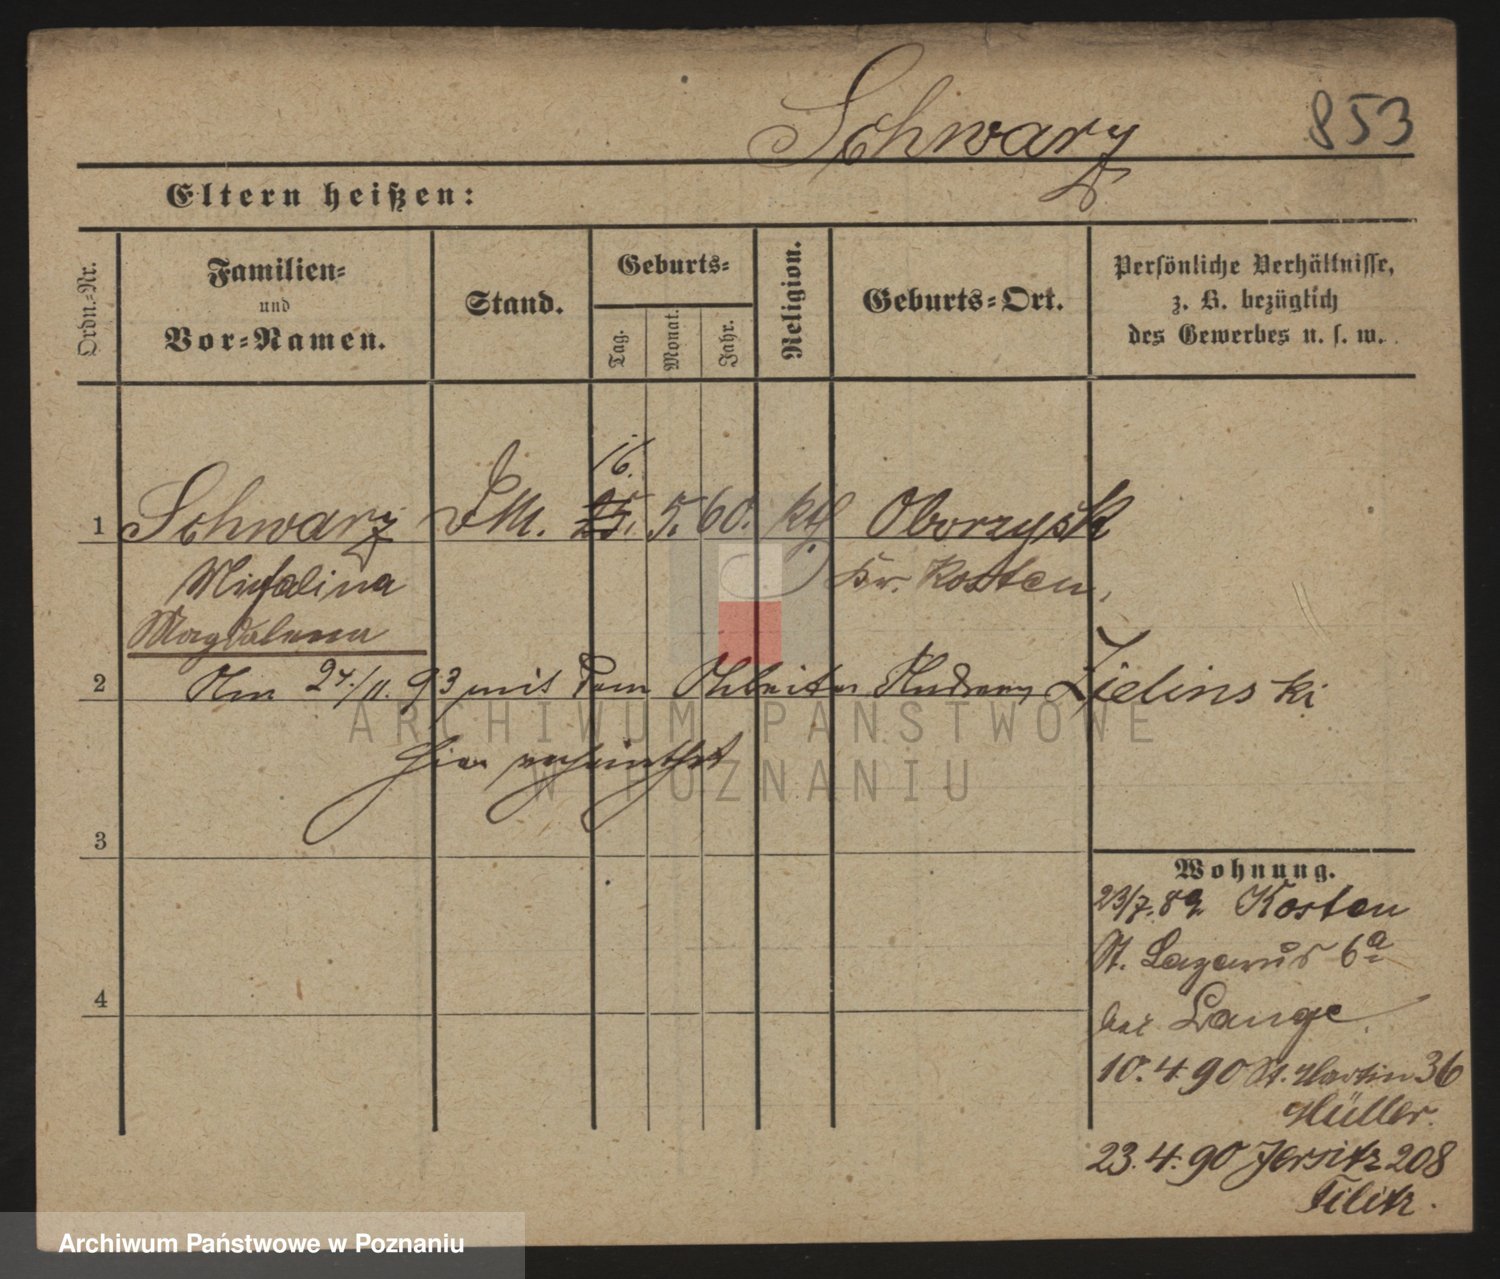 Schwarz
853
Eltern heißen:
Ordn.-Nr.
Familien- und Vor-Namen.
Stand.
Geburts-
Tag.
Monat.
Jahr.
Religion.
Geburts-Ort.
Persönliche Verhältnisse,
z. B. bezüglich
des Gewerbes u. s. w.
16.
1 Schwarz DM. 25. 5. 60. ktl Oborzysk
Kr. Kosten,
Magdalena
2 Am 24/11. 93 mit dem Arbeiter Andreas Zielinski
hier verheirathet
3
4
Wohnung.
23/7. 89 Kosten
St. Lazarus 6a
bei Lange
10. 4 90 St. Martin 36
Müller.
23. 4. 90 Jersitz 208
Tilitz.
ARCHIWUM PAŃSTWOWE
W POZNANIU
Archiwum Państwowe w Poznaniu